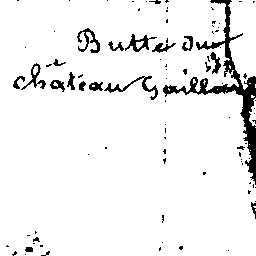 Butte du
château Gaillard